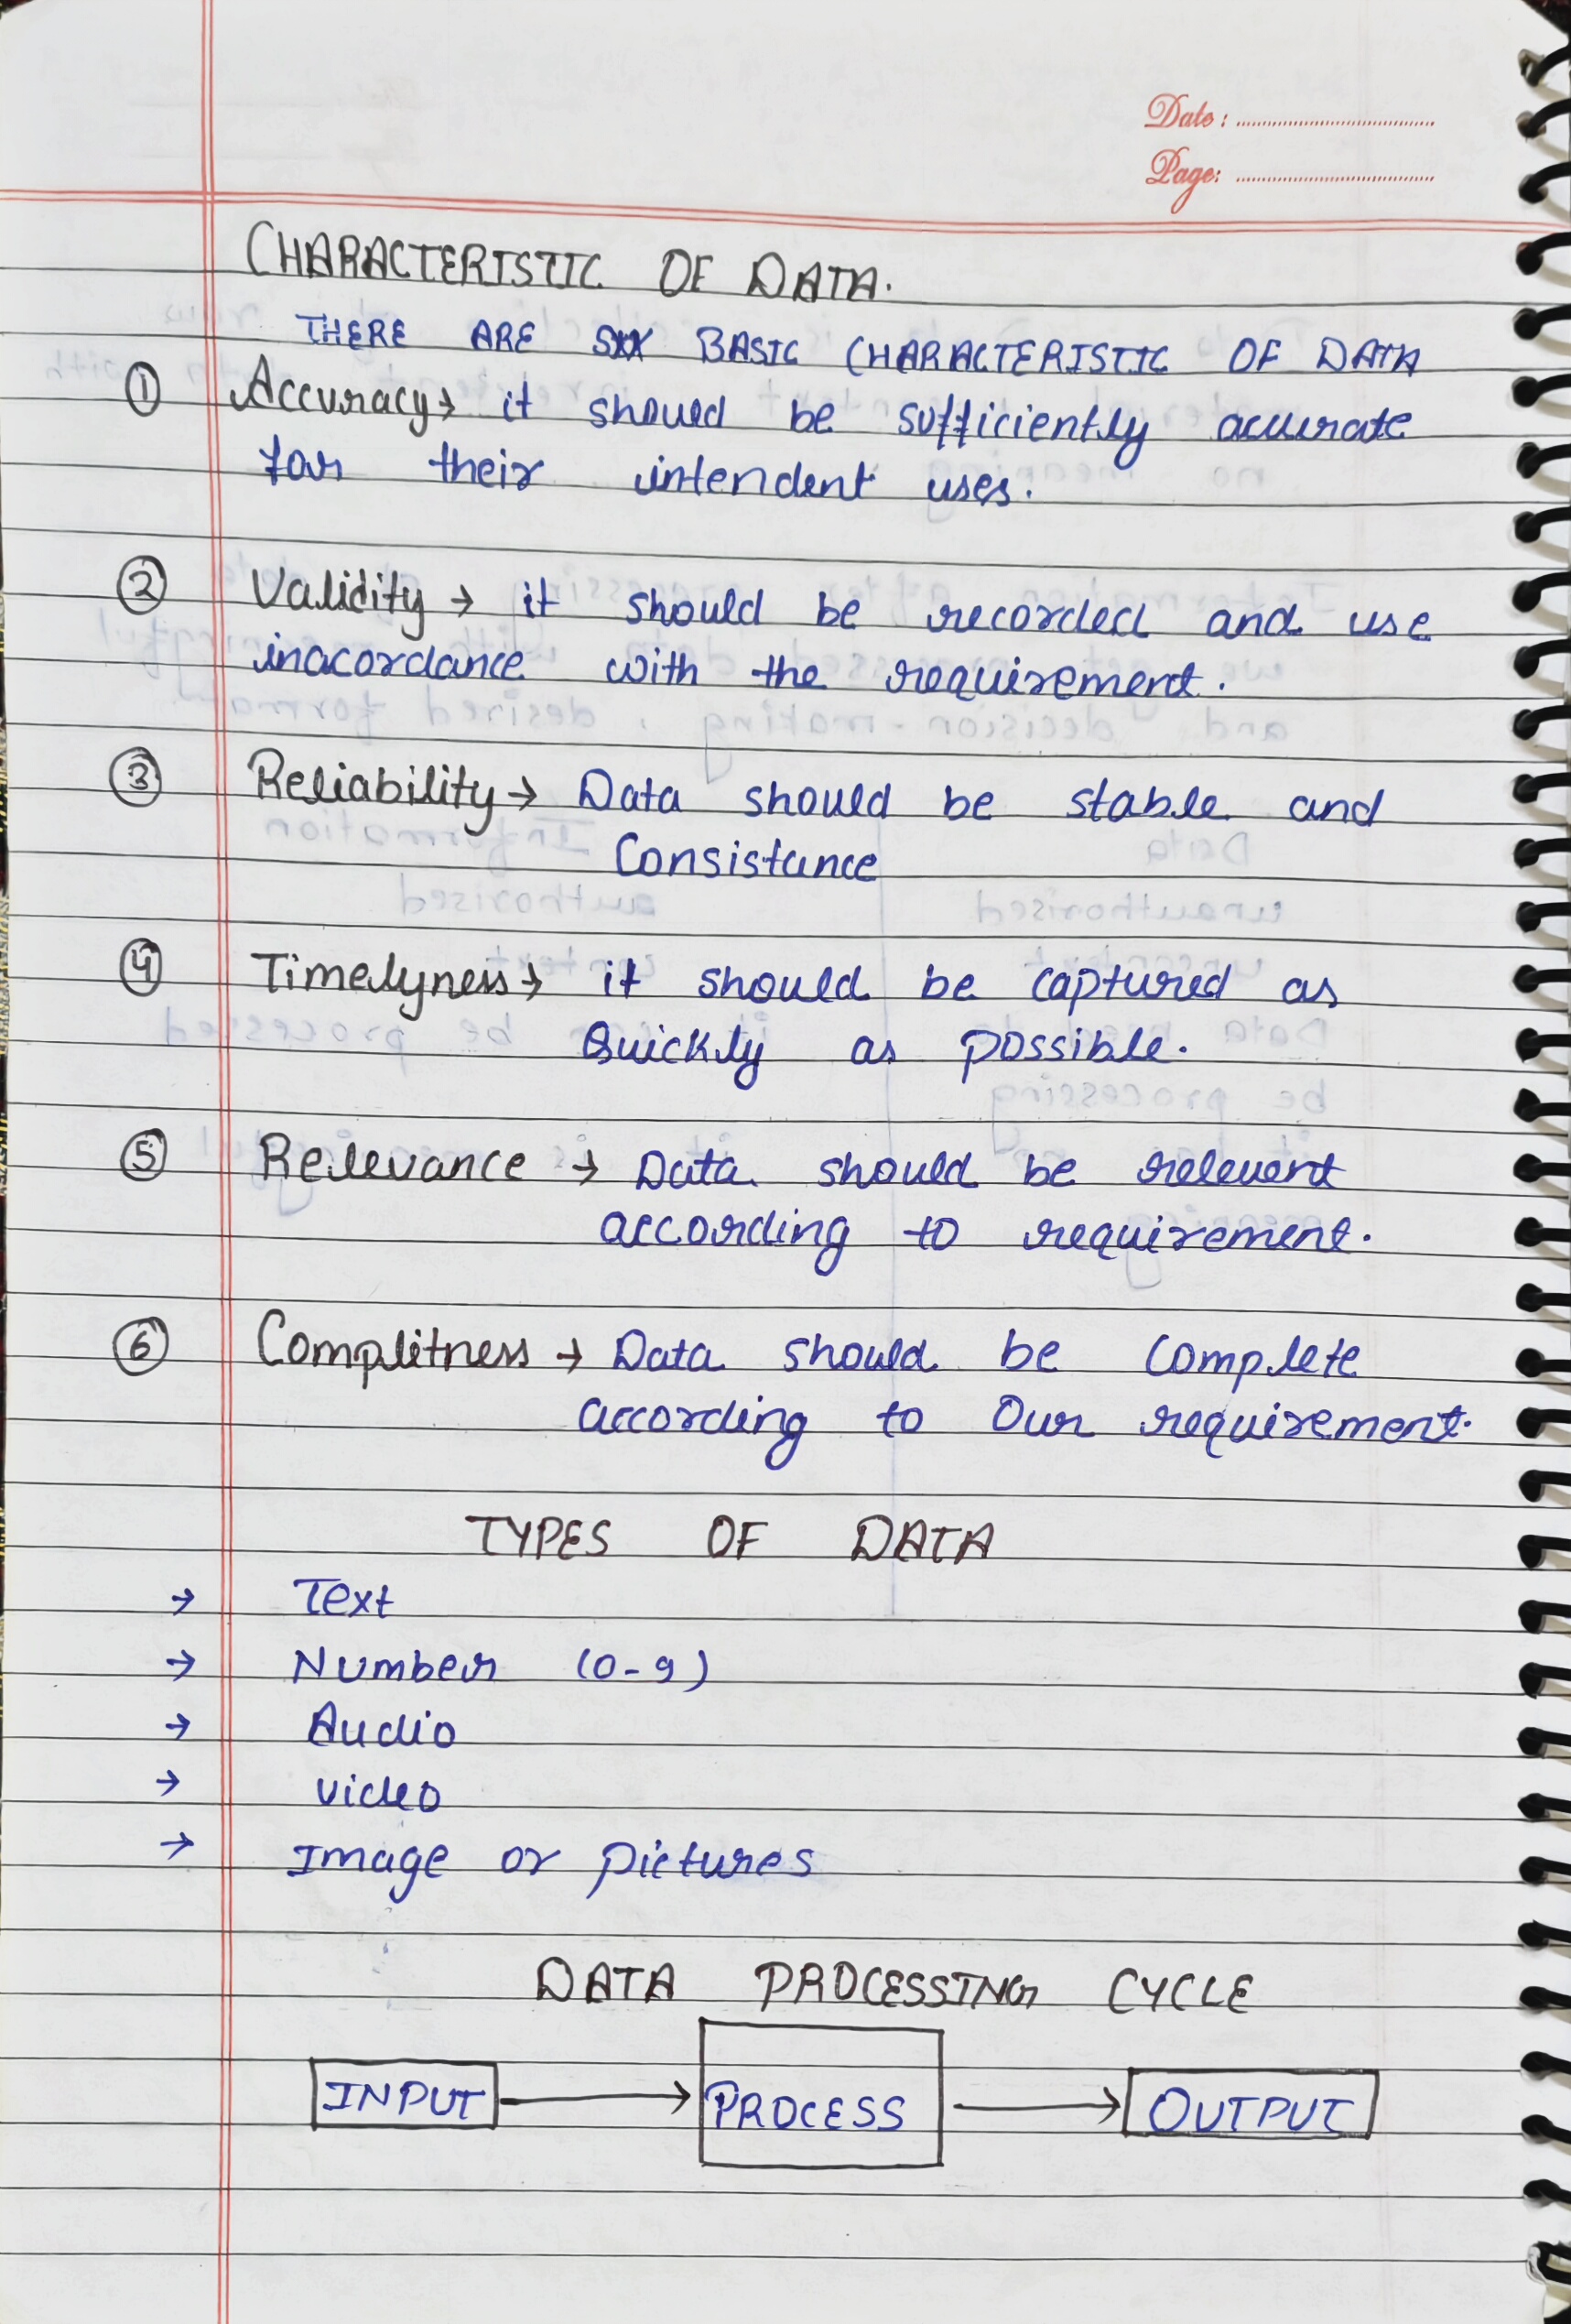 Date: ..............................
Page: ..............................
CHARACTERISTIC OF DATA.
THERE ARE SIX BASIC CHARACTERISTIC OF DATA
① Accuracy → it should be sufficiently accurate
for their intendent uses.
② Validity → it should be recorded and use
inacordance with the requirement.
③ Reliability → Data should be stable and
Consistance
④ Timelyness → it should be captured as
Quickly as possible.
⑤ Relevance → Data should be relevent
according to requirement.
⑥ Complitness → Data should be complete
according to Our requirement.
TYPES OF DATA
→ Text
→ Number (0-9)
→ Audio
→ video
→ Image or pictures
DATA PROCESSING CYCLE
INPUT → PROCESS → OUTPUT